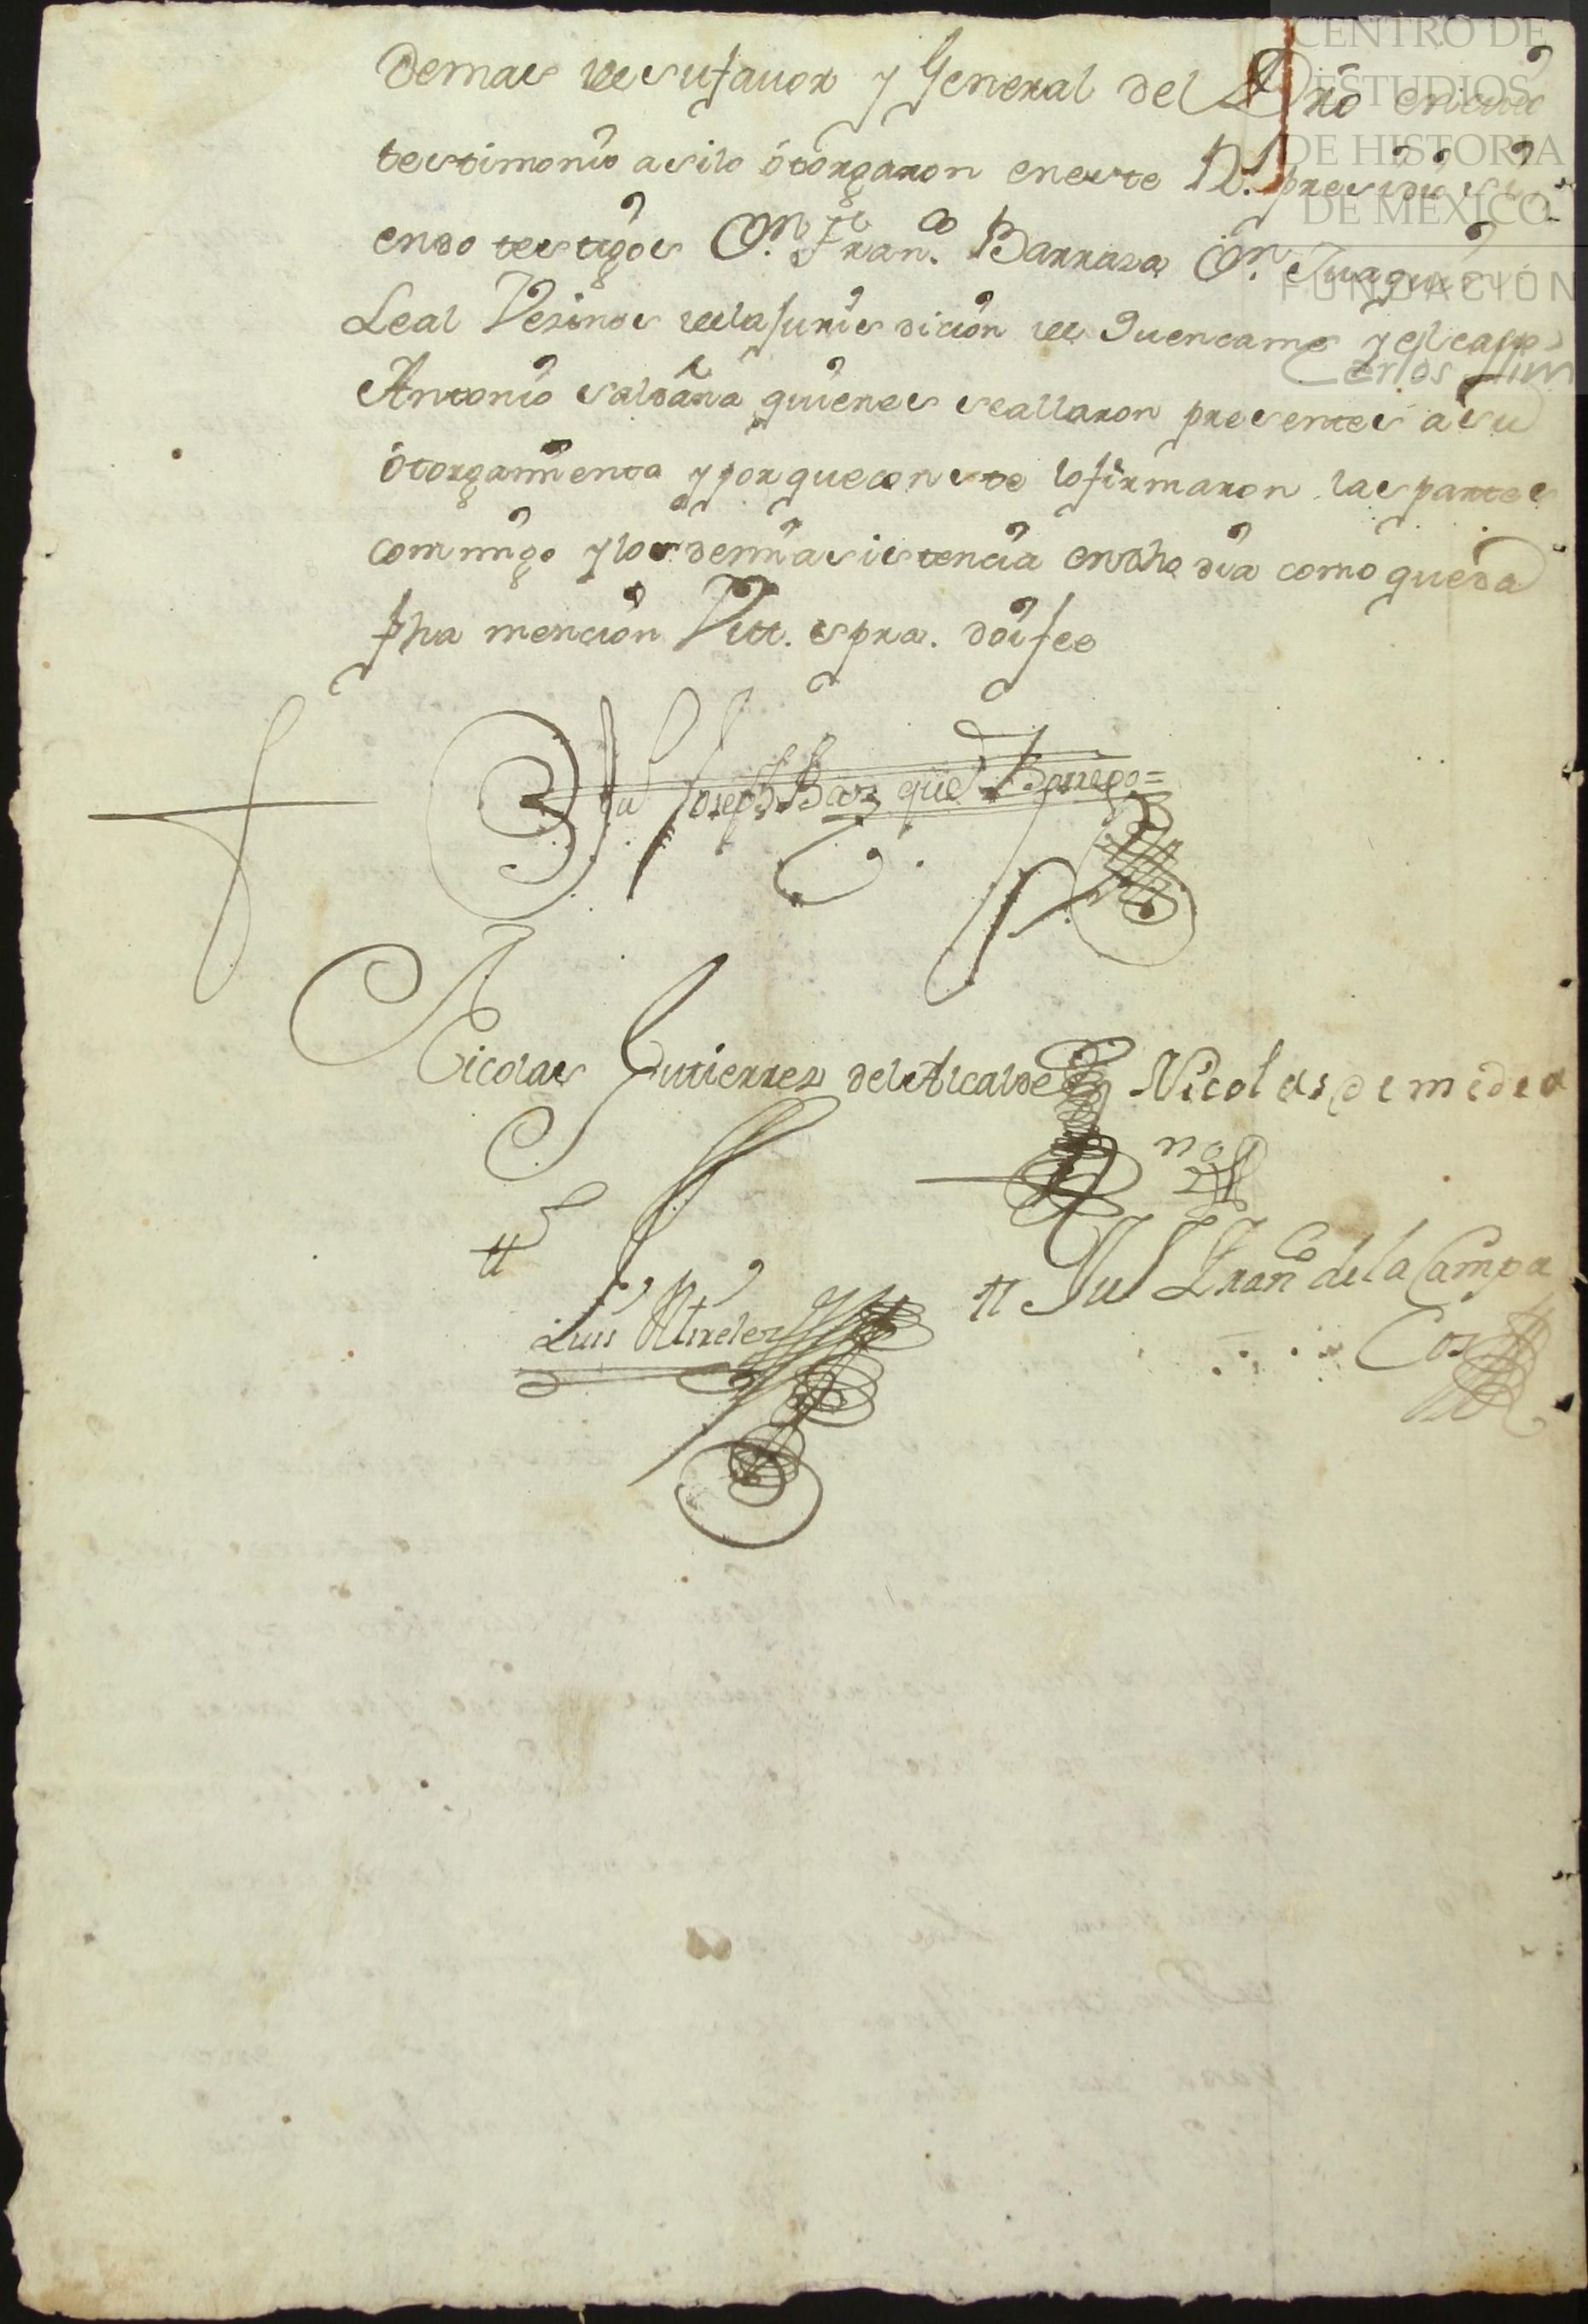 demas de su favor y General del dro en cuio
testimonio asi lo otorgaron en este Rl. presidio si
endo testigos Dn. Franco. Barrasa Dn. Juaquin
Leal Vezinos de la Jurisdicion de Quencame y el
Antonio saldaña quienes se allaron presentes a su
otorgamiento y por que conste lo firmaron las partes
conmigo y los de mi asistencia en dho dia como queda
fha mencion Vtt. spra. doi fee
Ju Joseph Bazques Borrego =
Nicolas Gutierres del Alcalde
Nicolas de medra
no
Luis
Ju Franco de la Campa
Cos
CENTRO DE
ESTUDIOS
DE HISTORIA
DE MÉXICO
FUNDACIÓN
Carlos Slim